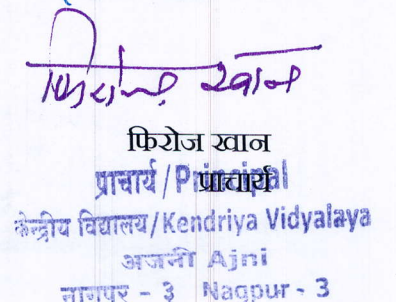 फिरोज खान
फिरोज खान
प्राचार्य
प्राचार्य/Principal
केन्द्रीय विद्यालय/Kendriya Vidyalaya
अजनी Ajni
नागपुर - 3 Nagpur - 3